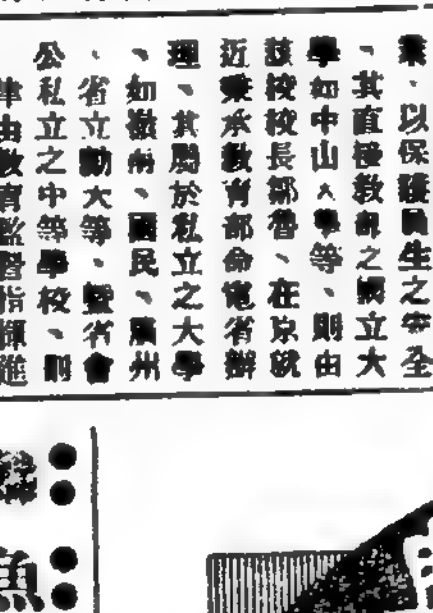 業、以保護員生之安全
、其直轄教部之國立大
學如中山大學等、則由
該校校長鄒魯、在京就
近秉承教育部命電省辦
理、其屬於私立之大學
、如嶺南、國民、廣州
、省立勷大等、暨省會
公私立之中等學校、則
律由教育監督指揮進
魚